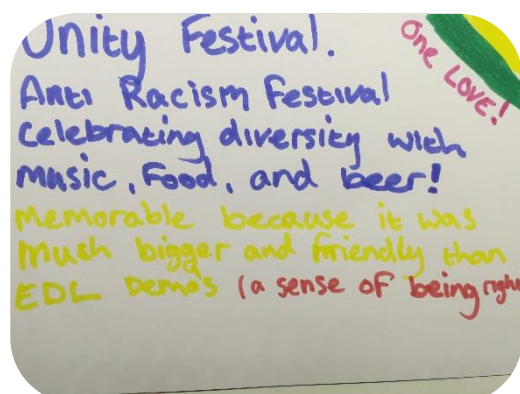 Unity Festival.
One LOVE!
Anti Racism Festival
celebrating diversity with
music, Food, and beer!
Memorable because it was
Mush bigger and friendly than
EDL Demo's (a sense of being right